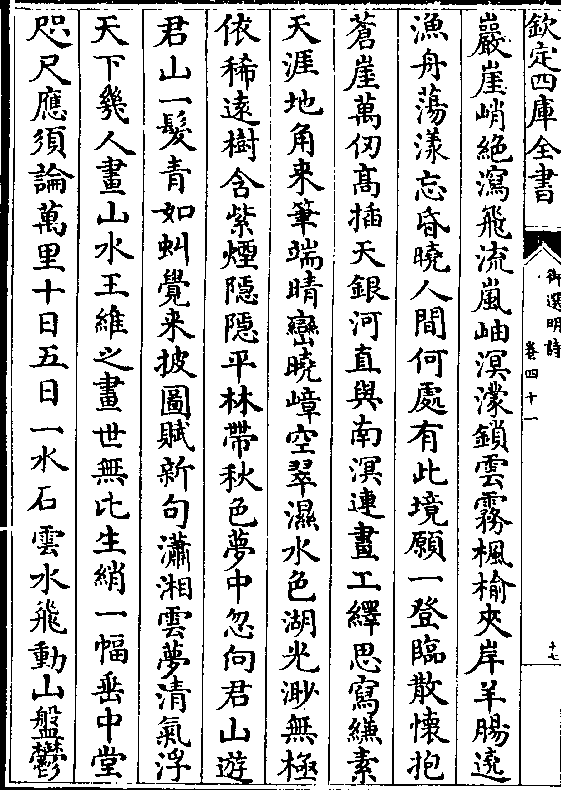 欽定四庫全書
御選明詩
卷四十一
十七
巖崖峭絶瀉飛流嵐岫溟濛鎖雲霧楓榆夾岸羊腸遶
漁舟蕩漾忘昏曉人間何處有此境願一登臨散懷抱
蒼崖萬仞髙插天銀河直與南溟連畫工繹思寫縑素
天涯地角来筆端晴巒曉嶂空翠濕水色湖光渺無極
依稀遠樹含紫煙隠隠平林帶秋色夢中忽向君山遊
君山一髮青如虬覺来披圖賦新句瀟湘雲夢清氣浮
天下幾人畫山水王維之畫世無比生綃一幅垂中堂
咫尺應須論萬里十日五日一水石雲水飛動山盤鬱